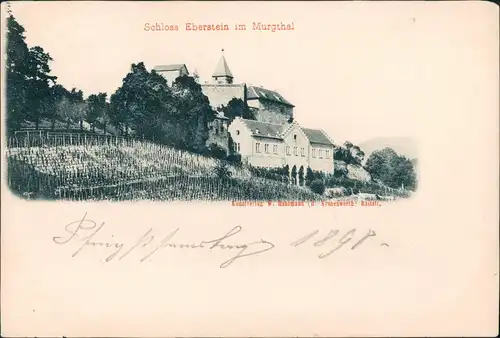 Schloss Eberstein im Murgthal
Kunstverlag W. Hahlmann (H. Kronenwerth) Rastatt.
Pfingstsamstag 1898.